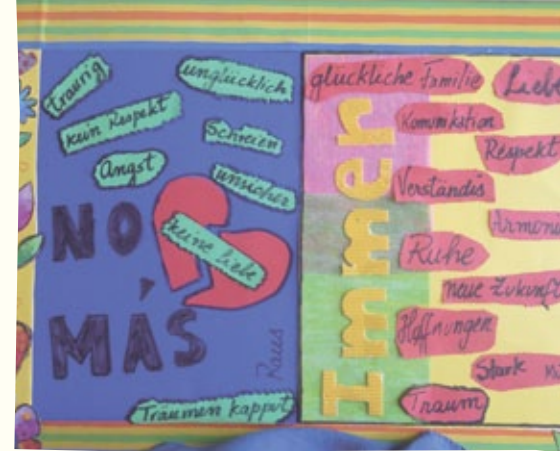 traurig
unglücklich
kein Respekt
Schreien
Angst
unsicher
NO
keine liebe
MÁS
Raus
Traumen kapput
Immer
gluckliche Familie
Liebe
Komunikation
Respekt
Verständis
Armoni
Ruhe
neue Zukunft
Hoffnungen
Stark
Traum